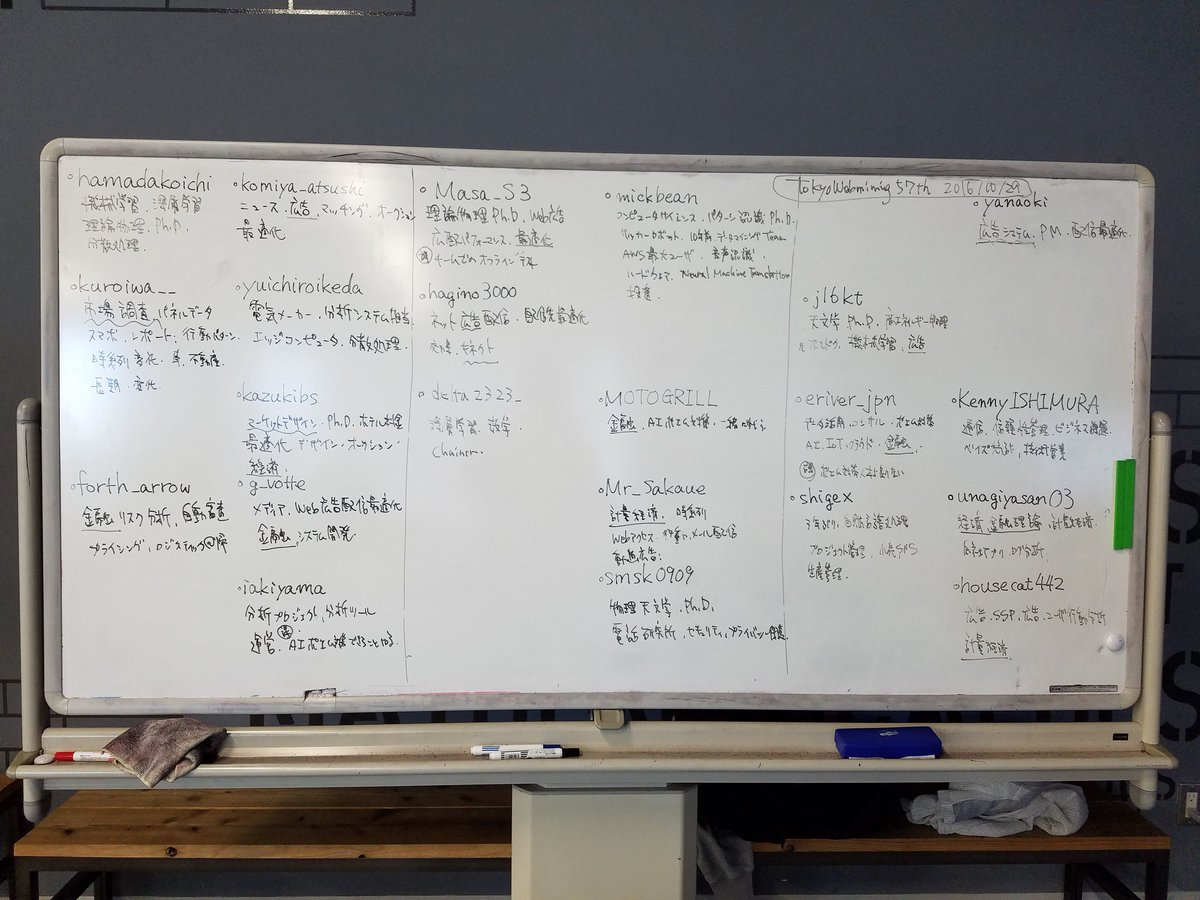 TokyoWebmining 57th 2016/10/29
hamadakoichi
機械学習、深層学習
理論物理、Ph.D.
分散処理。
kuroiwa__
市場調査、パネルデータ
スマホ、レポート、行動パターン、
時系列変化、車、不動産
長期変化
forth_arrow
金融リスク分析、自動審査
プライシング、ロジスティック回帰
komiya_atsushi
ニュース、広告、マッチング、オークション
最適化
yuichiroikeda
電気メーカー、分析システム担当
エッジコンピュータ、分散処理、
kazukibs
マーケットデザイン、Ph.D. ホテル料金
最適化 デザイン・オークション
経済。
g_votte
メディア、Web広告配信最適化
金融、システム開発
iakiyama
分析プロジェクト、分析ツール
運営、AIポエム
Masa_S3
理論物理Ph.D. Web広告
広配パフォーマンス、最適化
チームでのオフラインデ
hagino3000
ネット広告配信、配信先最適化
delta2323_
深層学習、数学
Chainer.
mickbean
コンピュータサイエンス、パターン認識Ph.D.
10年前、データマイニングTeam
AWS最大ユーザ、音声認識
Neural Machine Translation
MOTOGRILL
金融、AIポエム
Mr_Sakaue
計量経済、時系列
Webアクセス、メール配信
動画広告。
smsk0909
物理天文学、Ph.D,
電話研究所、セキュリティ、プライバシー
yanaoki
広告システム、PM、配信最適化
jl6kt
天文学Ph.D. 高エネルギー物理
機械学習、広告
eriver_jpn
データ活用コンサル、ポエム
AI、IoT、クラウド、金融、
ポエム
shigex
3年ぶり、自然言語処理
プロジェクト管理、
生産管理、
KennyISHIMURA
通信、信頼性管理、ビジネス
ベイズ
unagiyasan03
経済、金融理論、計量経済、
housecat442
広告、SSP、広告、ユーザ行動分析
計量経済